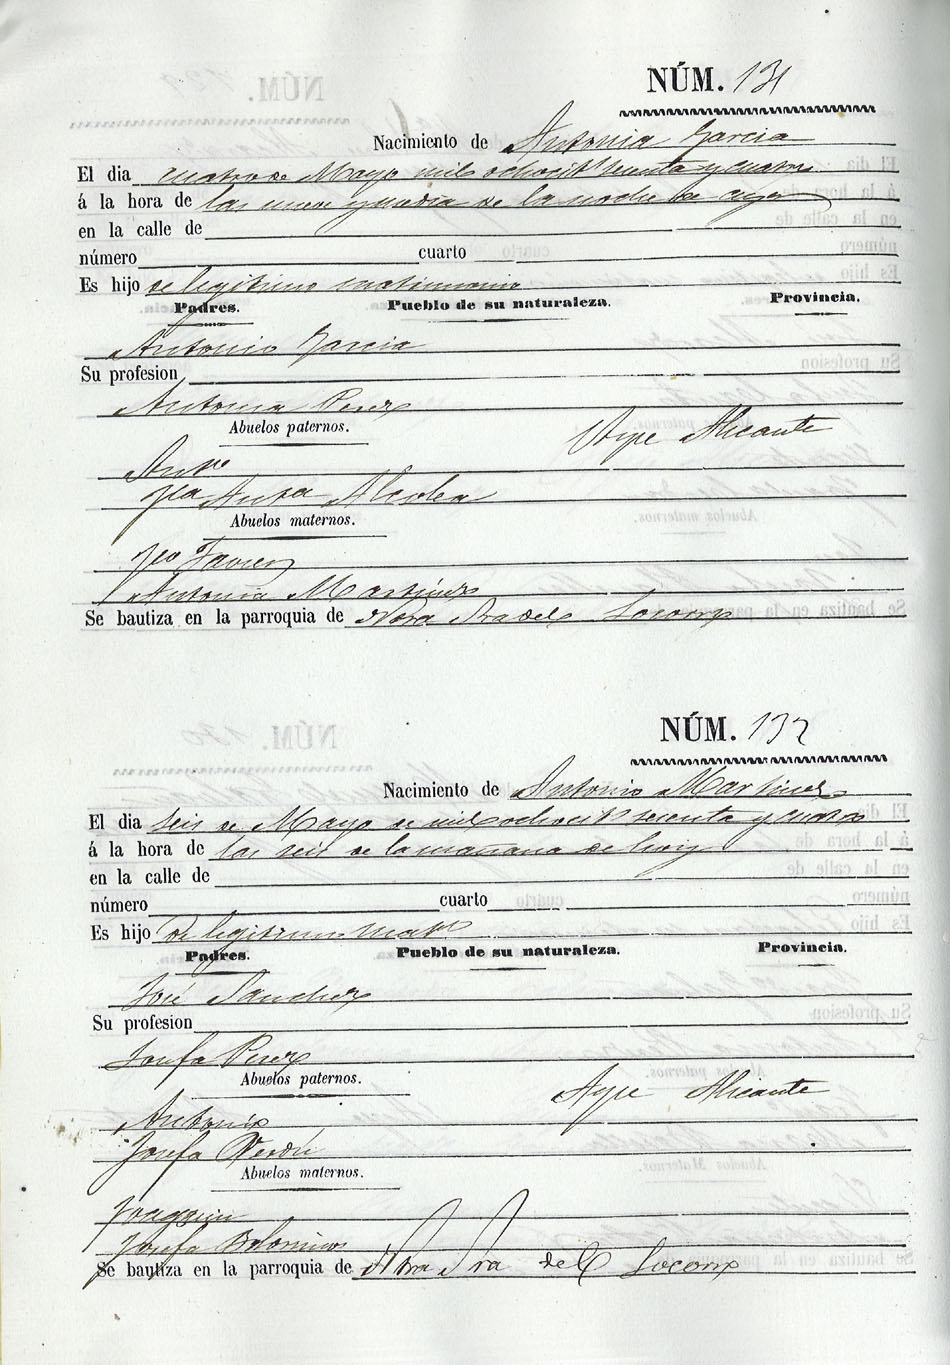 NÚM. 131
Nacimiento de Antonia Garcia
El dia cuatro de Mayo mil ochoc.s sesenta y cuatro
á la hora de las nueve y media de la noche de ayer
en la calle de
número cuarto
Es hijo de legitimo matrimonio
Padres. Pueblo de su naturaleza. Provincia.
Antonio Garcia
Su profesion
Antonia Perez
Abuelos paternos.
Aspe Alicante
Ant.º
Antª Alcolea
Abuelos maternos.
Javier
Antonia Martinez
Se bautiza en la parroquia de Ntra Sra del Socorro
NÚM. 132
Nacimiento de Antonio Martinez
El dia seis de Mayo de mil ochoc.s sesenta y cuatro
á la hora de las seis de la mañana de hoy
en la calle de
número cuarto
Es hijo de legitimo mat.º
Padres. Pueblo de su naturaleza. Provincia.
José Sanchez
Su profesion
Josefa Perez
Abuelos paternos.
Aspe Alicante
Antonio
Josefa Verdú
Abuelos maternos.
Joaquin
Josefa
Se bautiza en la parroquia de Ntra Sra del Socorro